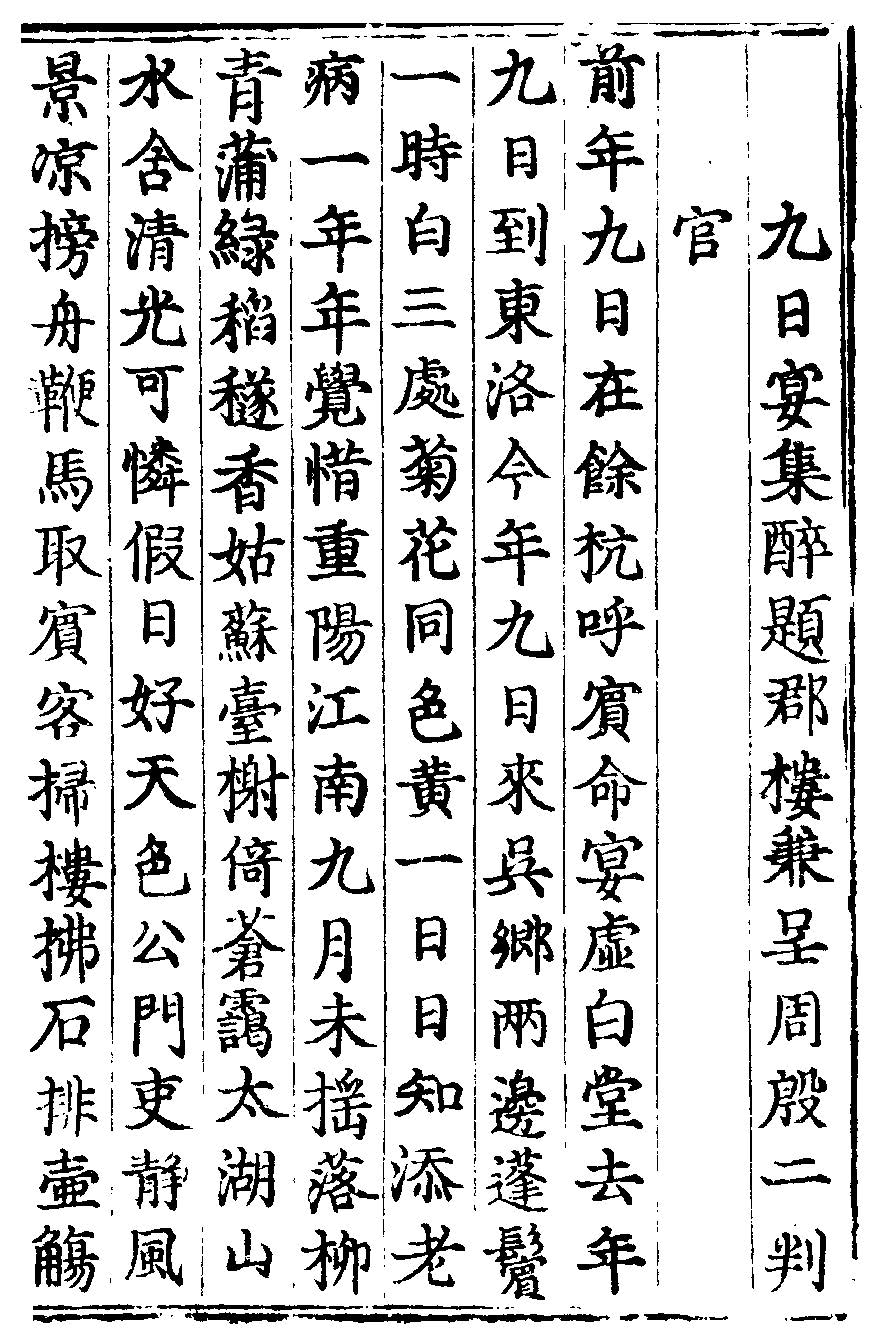 九日宴集醉題郡樓兼呈周殷二判
官
前年九日在餘杭呼賓命宴虛白堂去年
九日到東洛今年九日來吳鄉兩邊蓬鬢
一時白三處菊花同色黃一日日知添老
病一年年覺惜重陽江南九月未揺落柳
青蒲綠稻穟香姑蘇臺榭倚蒼靄太湖山
水含清光可憐假日好天色公門吏静風
景凉搒舟鞭馬取賓客掃樓拂石排壷觴